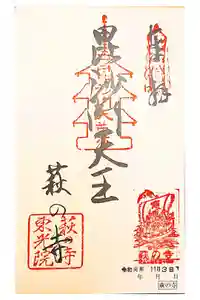 奉拝
毘沙門天王
萩の寺
萩の寺
東光院
萩の寺
令和元年 11月3日
年 月 日
萩の寺